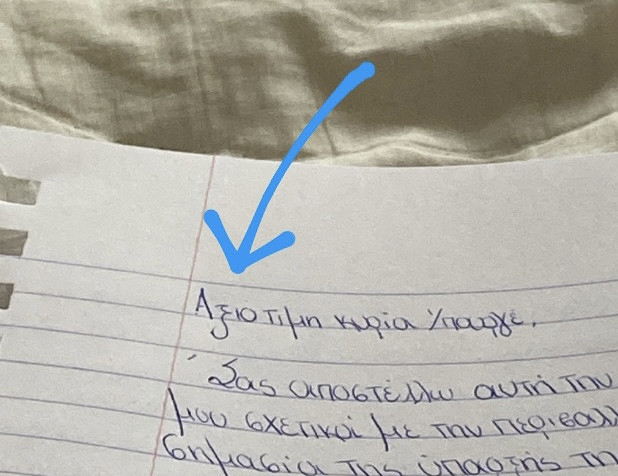 Αξιοτιμη κυρία Ύπαρχε,
Σας αποστέλλω αυτή την
μου σχετικά με την περιβαλλ
σημασία της ύπαρξής τη